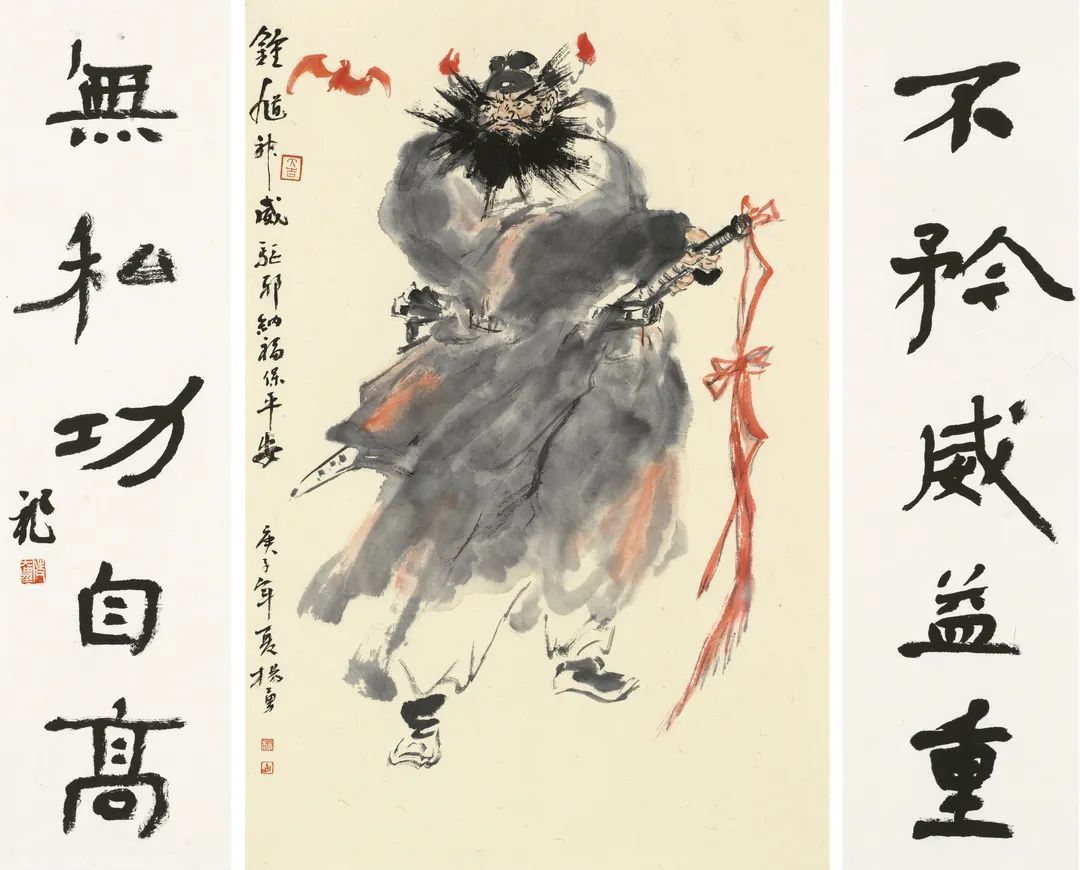 不矜威益重
鍾馗神威驅邪納福保平安
大吉
庚子年夏楊勇
無私功自高